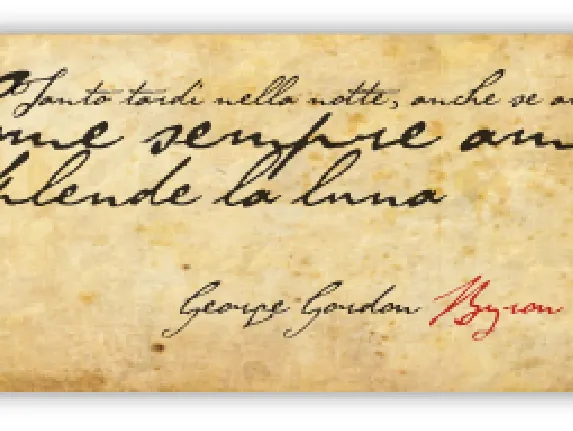 Tanto tardi nella notte, anche se
sempre
la luna
George Gordon Byron